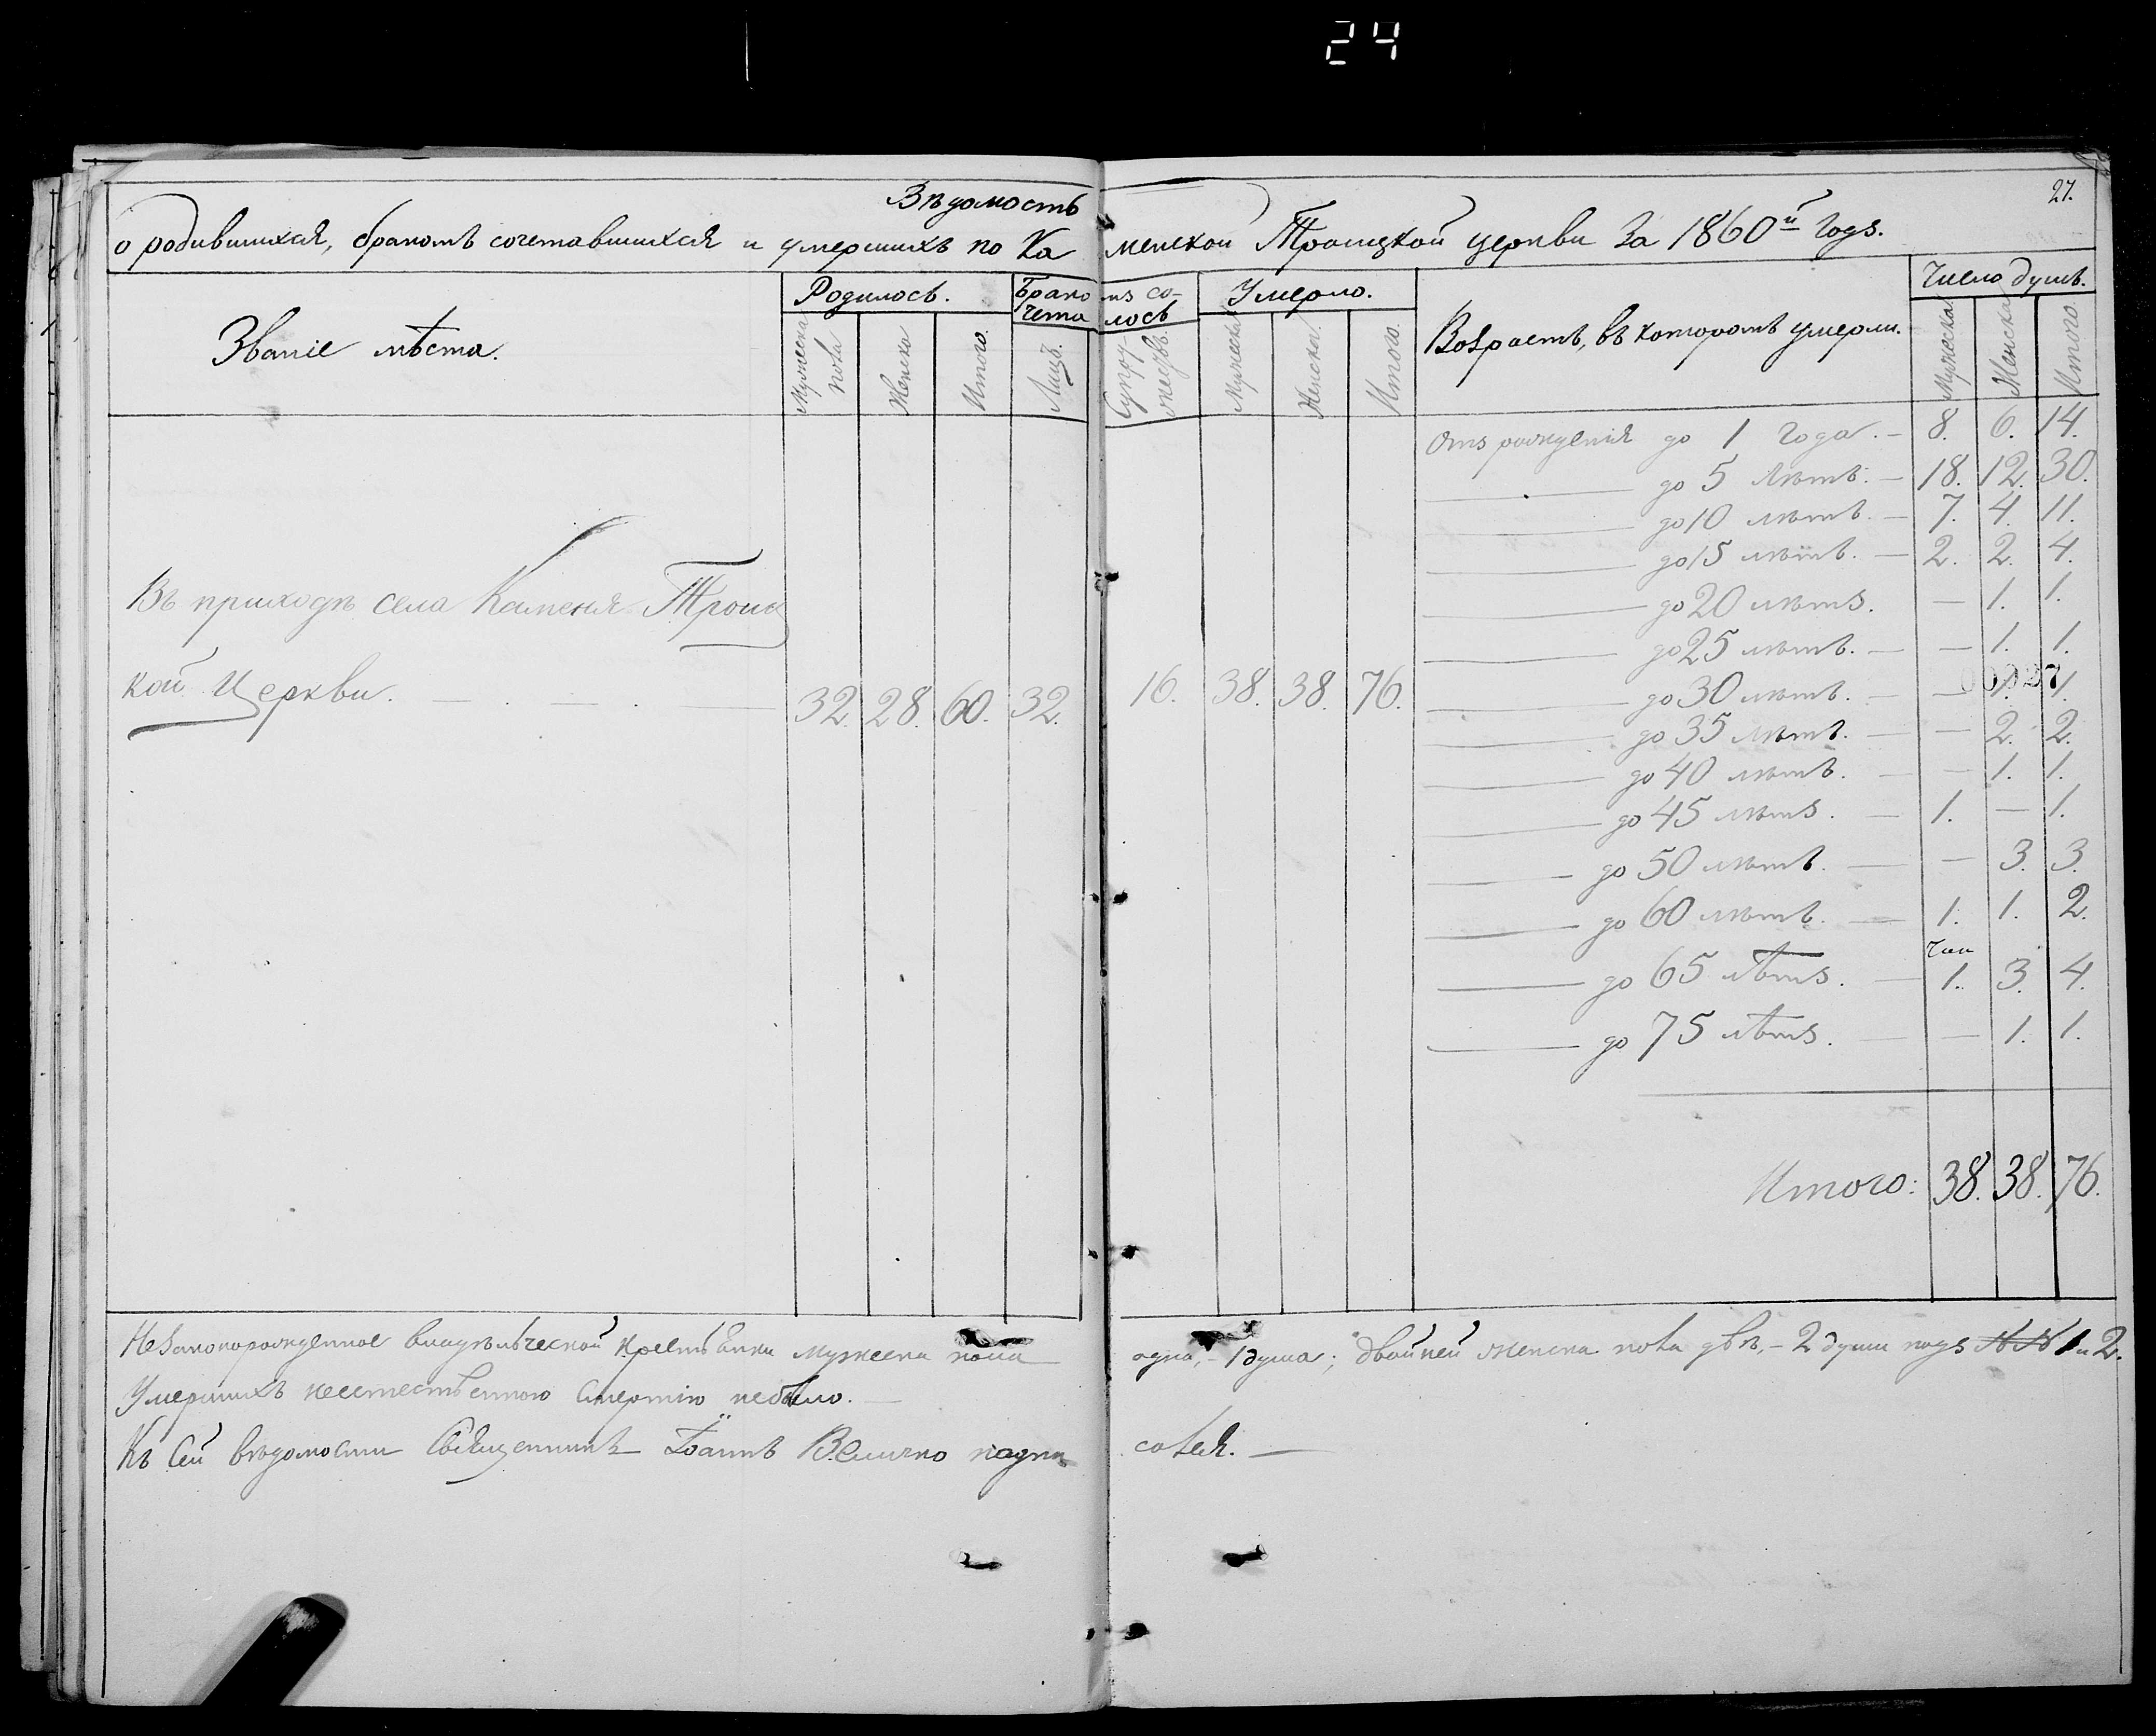 24
27.
Вѣдомость
о родившихся, бракомъ сочетавшихся и умершихъ по Ка менской Троицкой церкви За 1860й Годъ.
Званіе мѣста.
Родилось.
Мужеска пола
Женска
Итого.
Брако мъ со-
чета лось
Лицъ.
Супру-
жествъ.
Умерло.
Мужеска
Женска.
Итого.
Возрастъ, въ которомъ умерли.
Число душъ.
Мужеска
Женска
Итого
Отъ рожденія до 1 Года. — 8. 6. 14.
до 5 Лѣтъ. — 18. 12. 30.
до 10 лѣтъ. — 7. 4. 11.
до 15 лѣтъ. — 2. 2. 4.
до 20 лѣтъ. — 1. 1.
до 25 лѣтъ. — — 1. 1.
до 30 лѣтъ. — — 1. 1.
00027
до 35 лѣтъ. — — 2. 2.
до 40 лѣтъ. — — 1. 1.
до 45 лѣтъ. — 1. — 1.
до 50 лѣтъ. — — 3. 3.
до 60 лѣтъ. — 1. 1. 2.
до 65 лѣтъ. — 1. 3. 4.
до 75 лѣтъ. — — 1. 1.
Итого: 38. 38. 76.
Въ приходѣ села Каменя Троиц
кой Церкви. — . — . — 32. 28. 60. 32. 16. 38. 38. 76.
Незаконорожденное владѣльческой крестьянки мужеска пола одна, – 1 душа; двойней женска пола двѣ, – 2 души подъ №№ 1 и 2.
Умершихъ неестественною смертію небыло. —
Къ сей вѣдомости Священникъ Іоаннъ Величко подпи сался. —